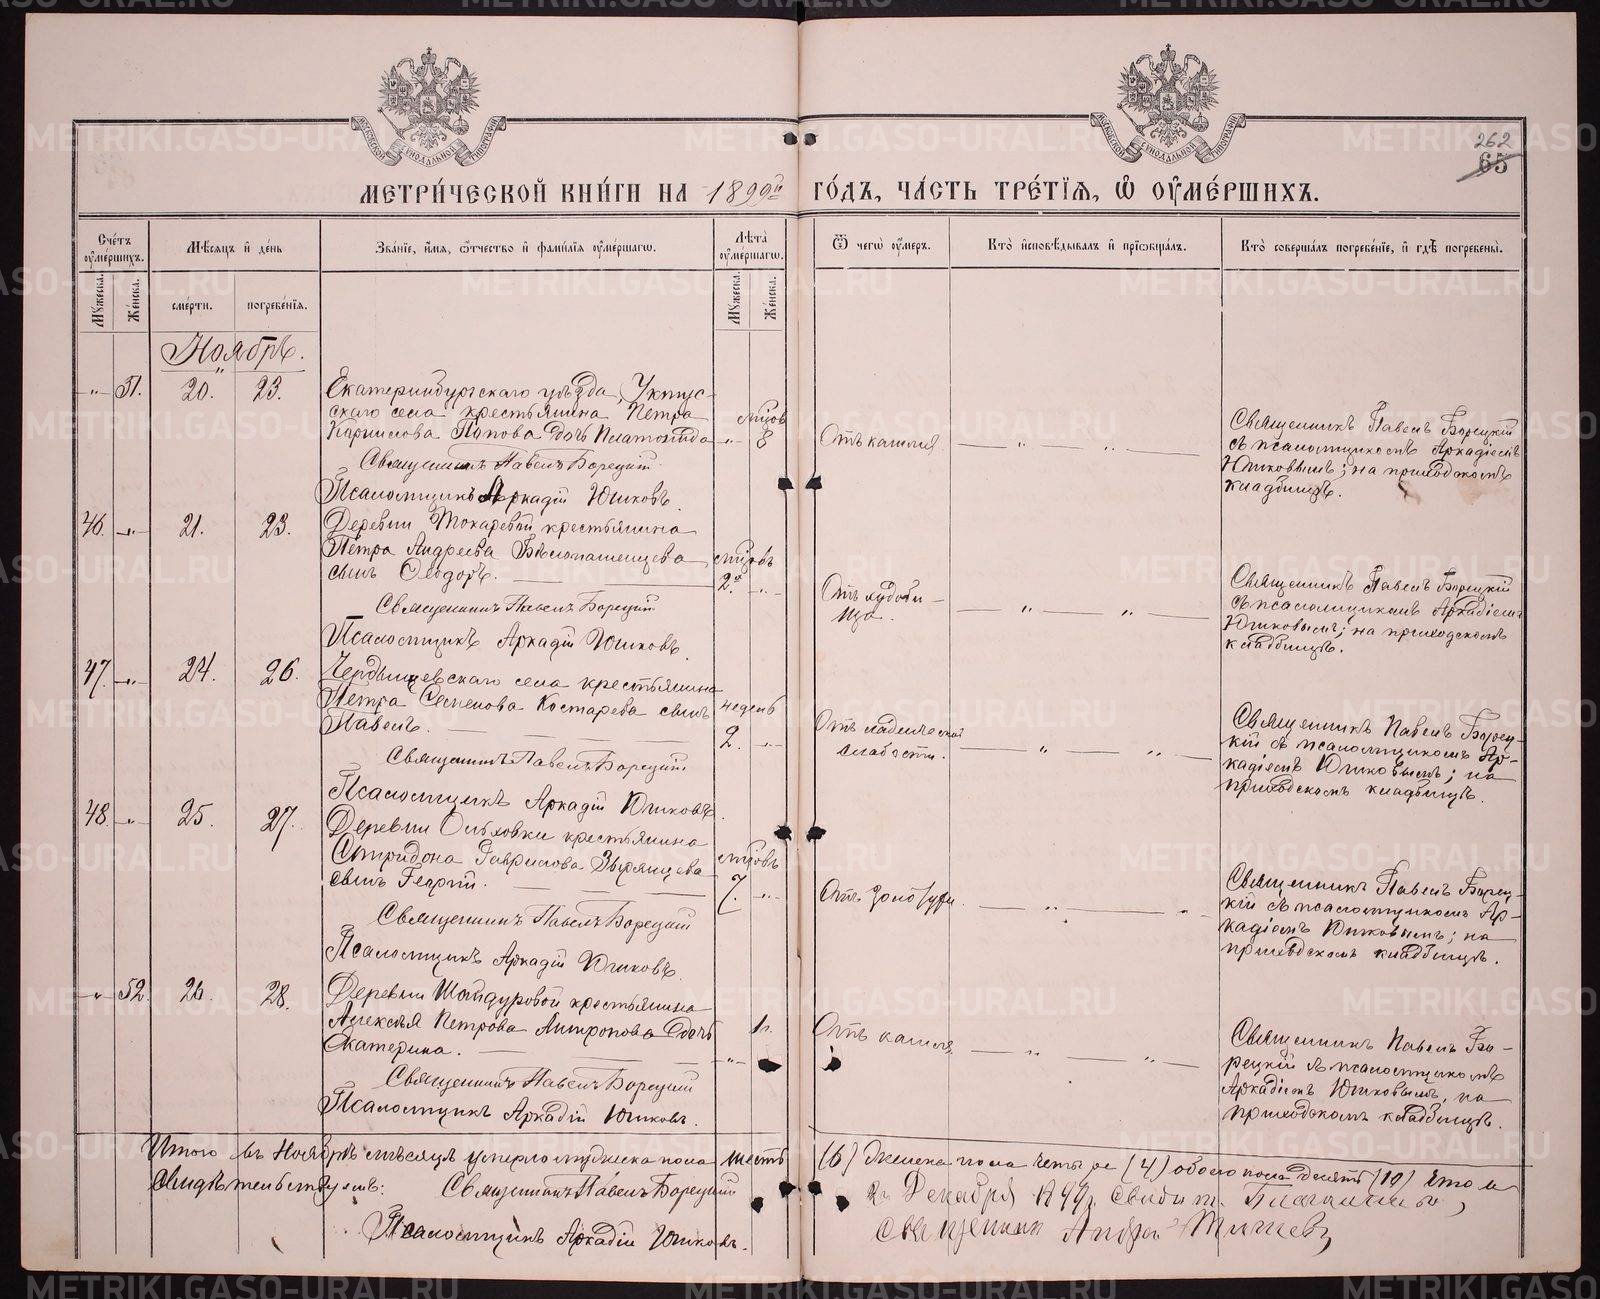 МОСКОВСКОЙ СѴНОДАЛЬНОЙ ТИПОГРАФІИ
МОСКОВСКОЙ СѴНОДАЛЬНОЙ ТИПОГРАФІИ
262
65
МЕТРИ́ЧЕСКОЙ КНИ́ГИ НА 1899й ГО́ДЪ, ЧА́СТЬ ТРЕ́ТІѦ, Ѡ҆ ОУ҆МЕ́РШИХЪ.
Сче́тъ оу҆ме́ршихъ.
Мѣ́сяцъ и҆ де́нь
Зва́нїе, и҆́мѧ, ѻ҆́тчество и҆ фами́лїѧ оу҆ме́ршагѡ.
Лѣ́та оу҆ме́ршагѡ.
Ѿ чегѡ̀ оу҆́меръ.
Кто̀ и҆сповѣ́дывалъ и҆ прїѡбща́лъ.
Кто̀ соверша́лъ погребе́нїе, и҆ гдѣ̀ погребены̀.
Мꙋ́жеска.
Же́нска.
сме́рти.
погребе́нїѧ.
Мꙋ́жеска.
Же́нска.
Ноябрь.
-"- 51. 20. 23. Екатеринбургскаго уѣзда, Уктус-
скаго села крестьянина Петра мцов
Корнилова Попова дочь Платонида -"- 8 Отъ кашля
Священникъ Павелъ Борецкій
Псаломщикъ Аркадій Юшковъ.
Священникъ Павелъ Борецкій
съ псаломщикомъ Аркадіемъ
Юшковымъ; на приходскомъ
кладбищѣ.
46. -"- 21. 23. Деревни Токаревой крестьянина
Петра Андреева Бѣлопашенцева мцовъ
сынъ Ѳеодоръ. 2. -"-
Священникъ Павелъ Борецкій
Псаломщикъ Аркадій Юшковъ.
Отъ худоби-
ща.
Священникъ Павелъ Борецкій
съ псаломщикомъ Аркадіемъ
Юшковымъ; на приходскомъ
кладбищѣ.
47. -"- 24. 26. Чердынцевскаго села крестьянина
Петра Семенова Костарева сынъ недель
Павелъ. 2. -"-
Священникъ Павелъ Борецкій
Псаломщикъ Аркадій Юшковъ.
Отъ младенческой
слабости.
Священникъ Павелъ Борец-
кій съ псаломщикомъ Ар-
кадіемъ Юшковымъ; на
приходскомъ кладбищѣ.
48. -"- 25. 27. Деревни Ольховки крестьянина
Спиридона Гаврилова Зырянцева мцовъ
сынъ Георгій. 7. -"-
Священникъ Павелъ Борецкій
Псаломщикъ Аркадій Юшковъ.
Отъ золотухи.
Священникъ Павелъ Борец-
кій съ псаломщикомъ Ар-
кадіемъ Юшковымъ; на
приходскомъ кладбищѣ.
-"- 52. 26. 28. Деревни Шайдуровой крестьянина
Алексѣя Петрова Антропова дочь 1 г.
Екатерина. -"-
Священникъ Павелъ Борецкій
Псаломщикъ Аркадій Юшковъ.
Отъ кашля
Священникъ Павелъ Бо-
рецкій съ псаломщикомъ
Аркадіемъ Юшковымъ, на
приходскомъ кладбищѣ.
Итого въ Ноябрѣ мѣсяцѣ умерло мужеска пола шесть (6) женска пола четыре (4) обоего пола десять (10) Въ томъ
свидѣтельствуемъ: Священникъ Павелъ Борецкій
Псаломщикъ Аркадій Юшковъ.
Декабря 1899 г.
Священникъ
METRIKI.GASO-URAL.RU